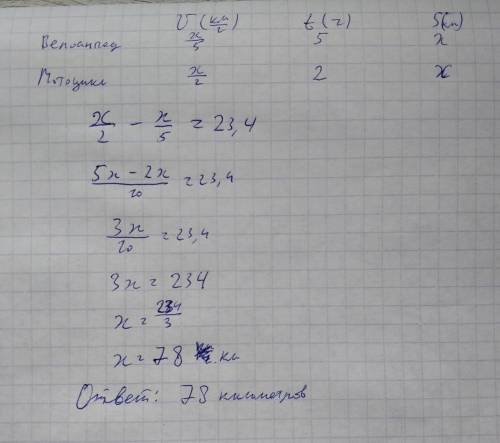 V (км/ч) t (ч) S(км)
Велосипед x/5 5 x
Мотоцикл x/2 2 x
x/2 - x/5 = 23,4
5x - 2x/10 = 23,4
3x/10 = 23,4
3x = 234
x = 234/3
x = 78 км
Ответ: 78 километров